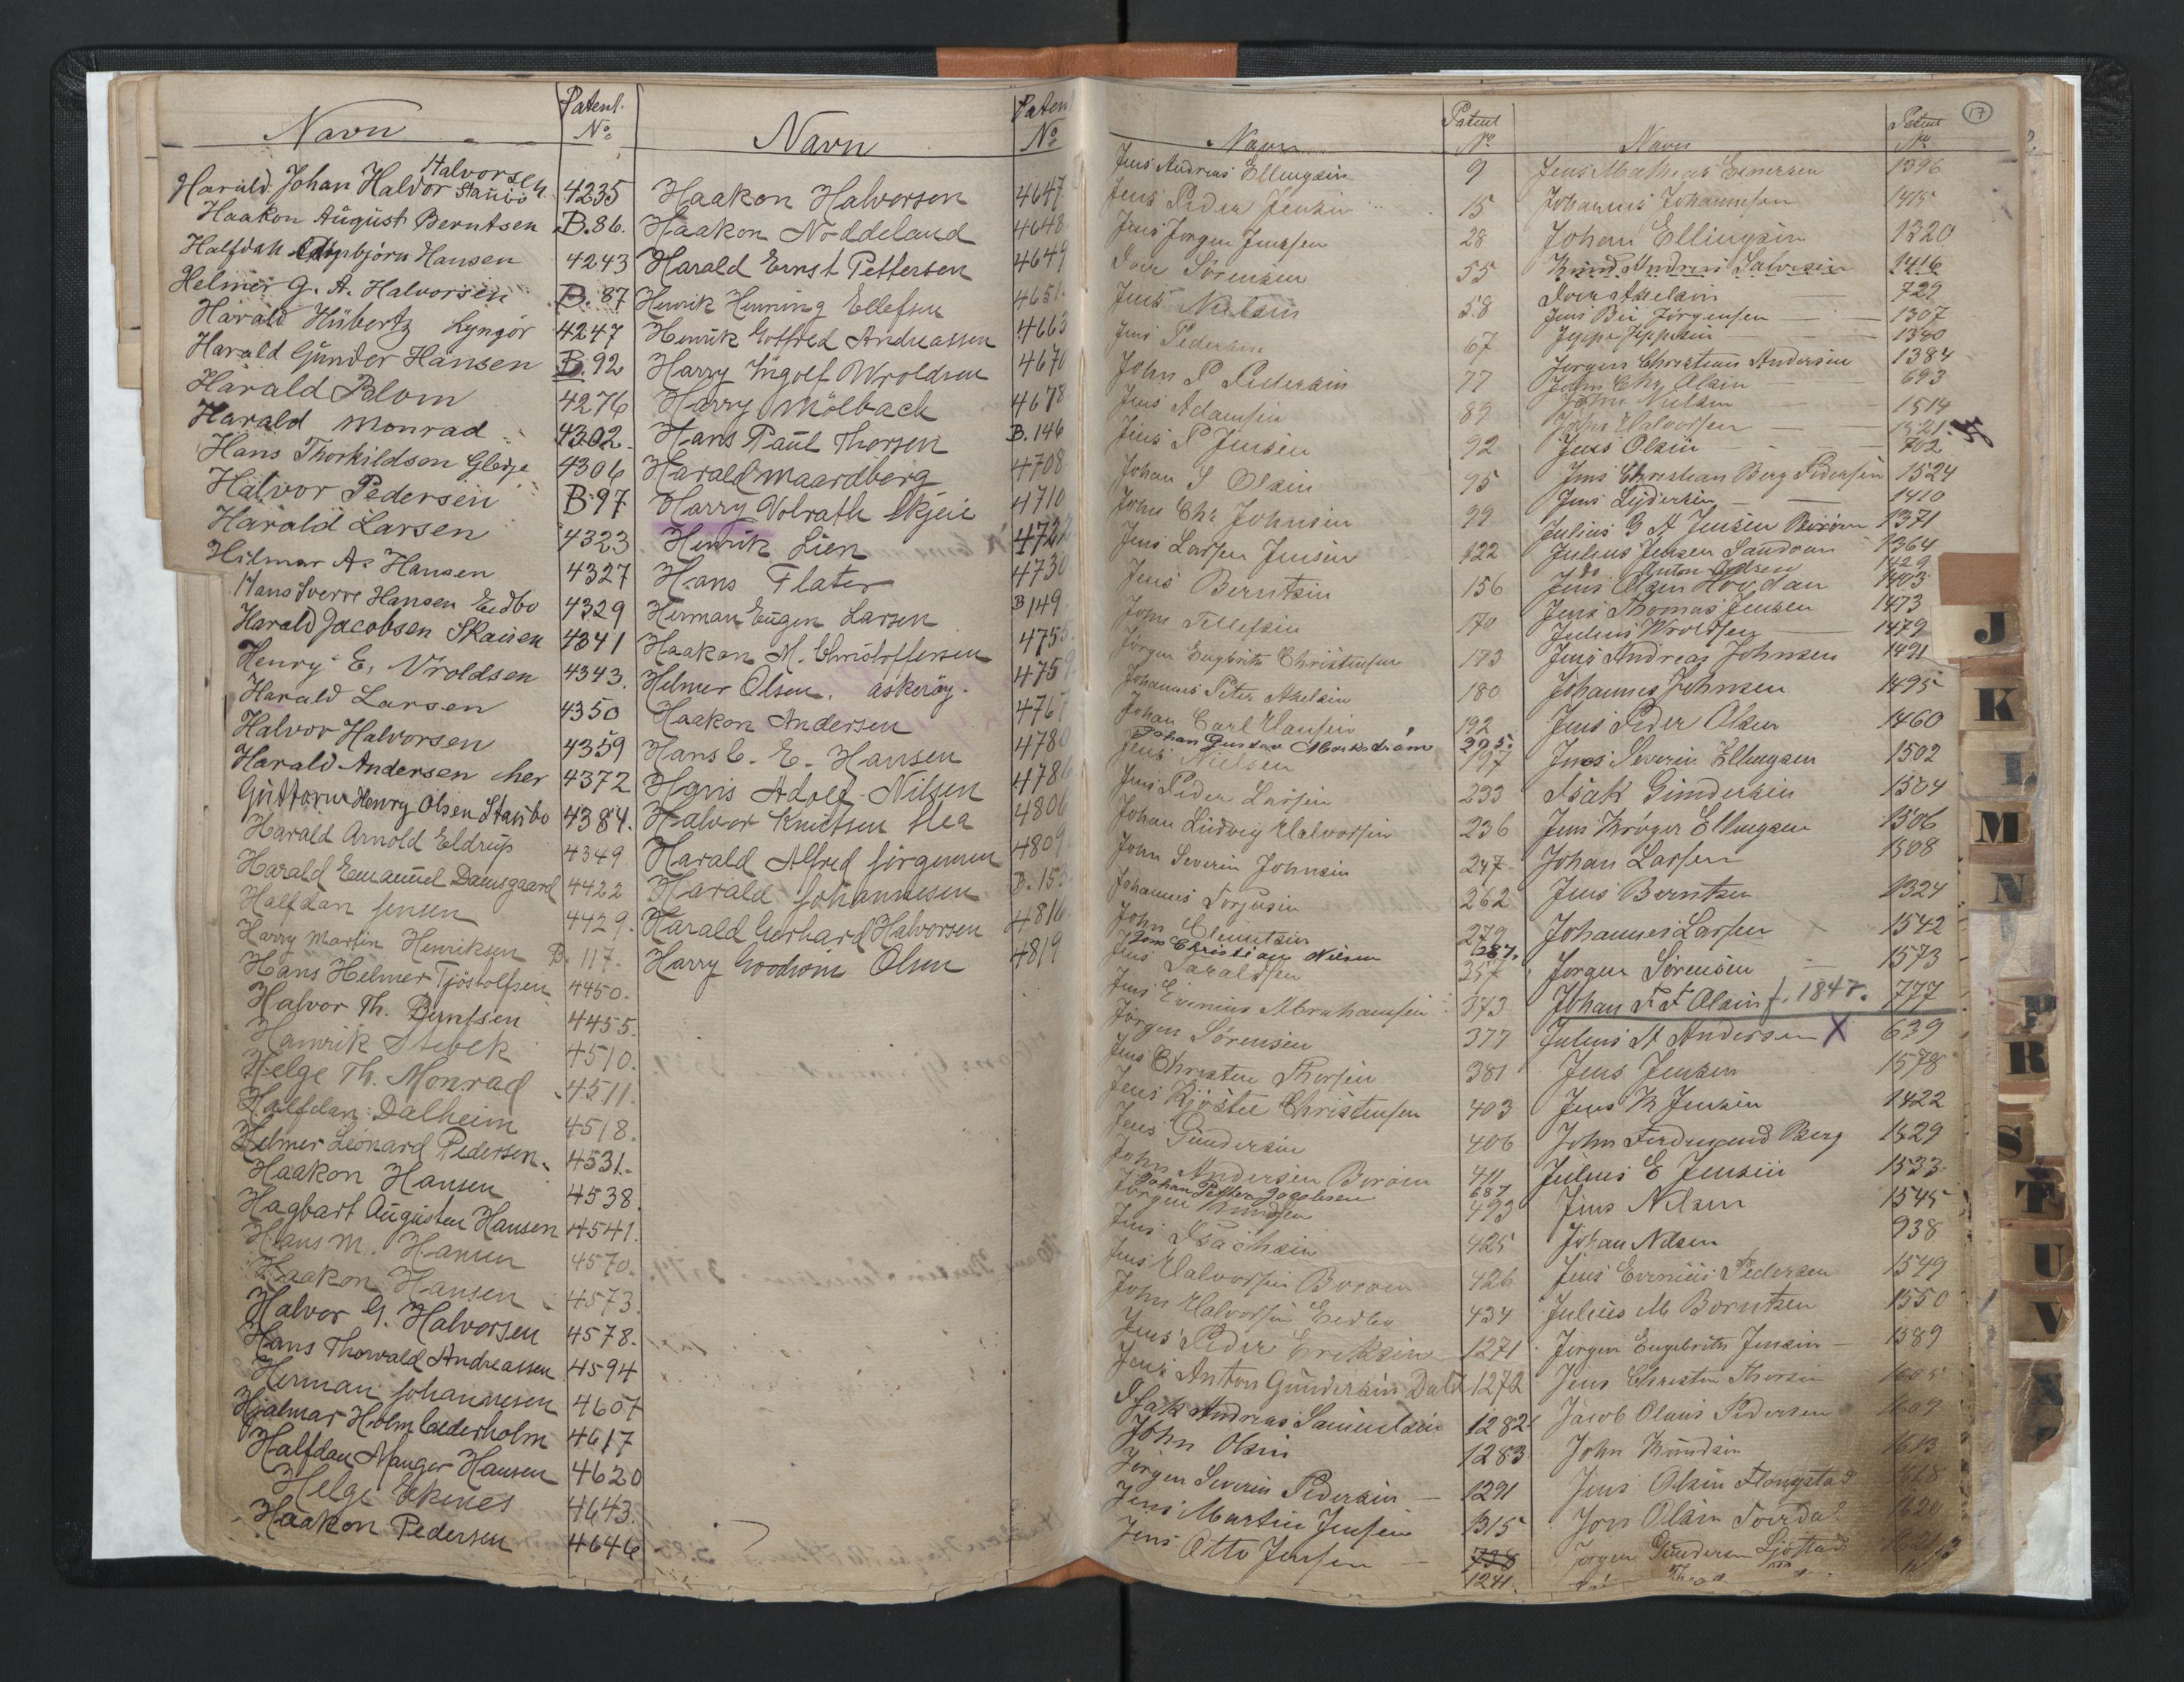 Navn Patent. No.
Harald Johan Haldor Halvorsen Stansö 4235
Haakon August Berntsen B.86.
Halfdan Hansen 4243
Helmer G. A. Halvorsen B. 87
Harald Hübertz Lyngör 4247
Harald Günder Hansen B 92
Harald Blom 4276
Harald Monrad 4302.
Hans Thorkildson 4306
Halvor Pedersen B 97
Harald Larsen 4323
Hilmar A. Hansen 4327
Hans Sverre Hansen Eidbo 4329
Harald Jacobsen Skaisen 4341
Henry E. Vroldsen 4343.
Harald Larsen 4350
Halvor Halvorsen 4359
Harald Andersen her 4372
Güttorm Henry Olsen Stansbo 4384.
Harald Arnold Eldrup 4349.
Harald Emanuel Damsgaard 4422
Halfdan Jensen 4429.
Harry Martin Henriksen B. 117.
Hans Helmer Tjöstolfsen 4450.
Halvor Th. Berntsen 4455.
Henrik Stebek 4510.
Helge Th. Monrad 4511.
Halfdan Dalheim 4518.
Helmer Leonard Pedersen. 4531.
Haakon Hansen 4538.
Hagbart Augusten Hansen 4541.
Hans M. Hansen 4570.
Haakon Hansen 4573.
Halvor G. Halvorsen 4578.
Hans Thorvald Andreassen 4594
Herman Johannesen 4607
Hjalmar Holm Cederholm 4617
Halfdan Manger Hansen 4620
Helge Ekenes 4643.
Haakon Pedersen 4646
Navn Paten No
Haakon Halvorsen 4647
Haakon Noddeland 4648
Harald Ernst Pettersen 4649
Henrik Henning Ellefsen 4651.
Henrik Gotfred Andreassen 4663
Harry Ingolf Wroldsen 4670
Harry Mölbach 4678
Hans Paul Thorsen B. 146
Harald Maardberg 4708
Harry Volrath Skjeie 4710
Henrik Lien 472
Hans Flater 4730
Herman Eugen Larsen B 149
Haakon M. Christoffersen 4755.
Helmer Olsen. Askeröy. 4759
Haakon Andersen 476
Hans C. E. Hansen 4780
Hans Adolf Nilsen 4786
Halvor Knutsen Hea 4806
Harald Alfred Jörgensen 4809
Harald Johannesen B. 15
Harald Gerhard Halvorsen 4816
Harry Goodwin Olsen 4819
Navn Patent No
Jens Andreas Ellingsen 9
Jens Peder Jensen 15
Jens Jorgen Jensen 28
Iver Sörensen 55
Jens Nielsen 58
Jens Pedersen 67
John P Pedersen 77
Jens Adamsen 89
Jens P Jensen 92
Johan S Olsen 95
John Chr Johnsen 99
Jens Larsen Jensen 122
Jens Berntsen 156
John Tellefsen 170
Jörgen Engbrits Christensen 173
Johannes Peter Axelsen 180
Johan Carl Hansen 192
Johan Gustav 295.
Jens Nielsen 197
Jens Peder Larsen 233
Johan Ludvig Halvorsen 236
John Severin Johnsen 247
Johannes Torjusen 262
John Clemetsen 279
Jens Christian Nilsen 287.
Jens Taraldsen 357
Jens Evenius Abrahamsen 373
Jörgen Sörensen 377
Jens Christen Thorsen 381
Jens Kjostel Christensen 403
Jens Gundersen 406
John Andersen Boröen 411
Johan Petter Jacobsen 687
Jörgen Knudsen 423
Jens Isachsen 425
Jens Halvorsen Boröen 426
John Halvorsen Eidbo 434
Jens Peder Eriksen 1271
Jens Anton Gundersen Dahl 1272
Isak Andreas Samuelsen 1282
John Olsen 1283
Jörgen Severin Pedersen 1291
Jens Martin Jensen 1315
Jens Otto Jensen 738
1241.
Navn Patent No 17
Jens Mathias Evensen 1396
Johannes Johannesen 1415
Johan Ellingsen 1320
Knud Andreas Salvesen 1416
Iver Axelsen 729
Jens Bei Jörgensen 1307
Jeppe Jeppesen 1340
Jorgen Christian Andersen 1384
John Chr Olsen 693
John Nielsen 1514
John Halvorsen 1521.
Jens Olsen 702
Jens Christian Berg Pedersen 1524
Jens Lydersen 1410
Julius G A Jensen Boröen 1371
Julius Jensen Sandöen 1364
do Anton 1429
Jens Olsen Hovdan 1403
Jens Thomas Jensen 1473
Julius Wroldsen 1479
Jens Andreas Johnsen 1491
Johannes Johnsen 1495
Jens Peder Olsen 1460
Jens Severin Ellingsen 1502
Isak Gundersen 1504
Jens Kröger Ellingsen 1506
Johan Larsen 1508
Jens Berntsen 1324
Johannes Larsen 1542
Jörgen Sörensen 1573
Johan F. F Olsen f. 1847. 777
Julius A Andersen X 639
Jens Jensen 1578
Jens K Jensen 1422
John Ferdinand Berg 1529
Julius E Jensen 1533
Jens Nilsen 1545
Johan Nilsen 938
Jens Evenius Pedersen 1549
Julius M Berntsen 1550
Jörgen Engebrits Jensen 1589
Jens Christen Thorsen 1605
Jacob Olaus Pedersen 1609
John Knudsen 1613
Jens Olsen Flangstad 1618
Jon Olsen 1620
Jörgen Gundersen 1621
J
K
L
M
N
P
R
S
T
U
V